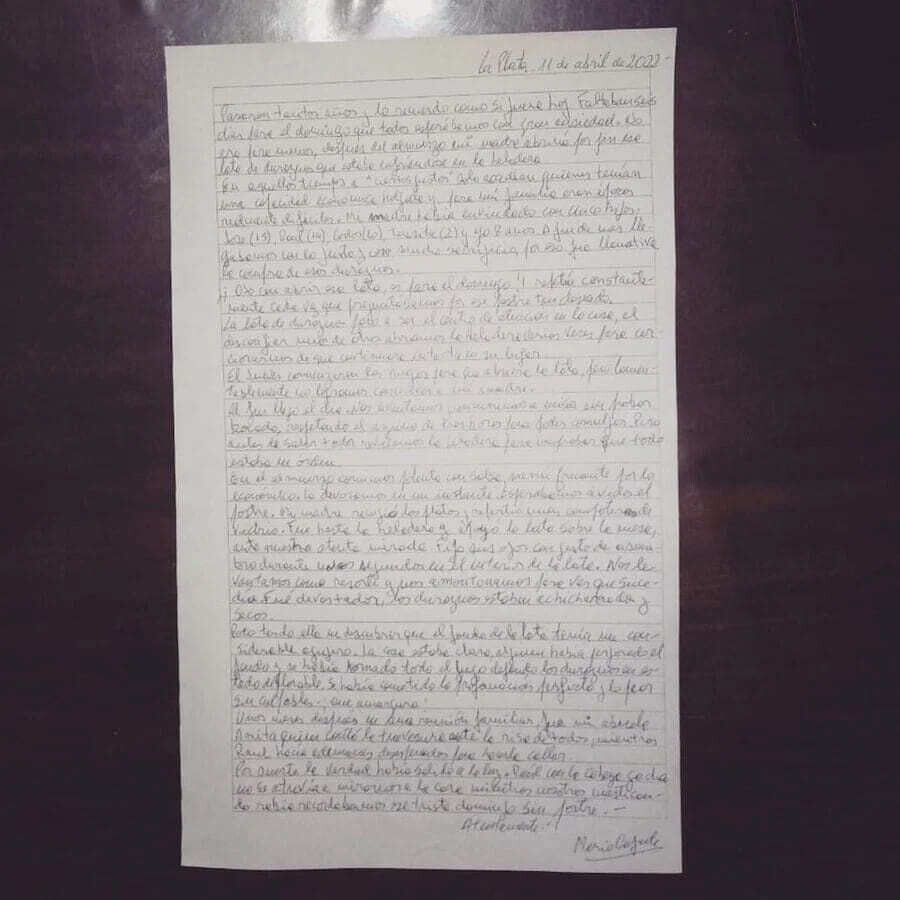 La Plata, 11 de abril de 2022.-
Pasaron tantos años y lo recuerdo como si fuera hoy. Faltaban seis
días para el domingo que todos esperábamos con gran ansiedad. No
era para menos, después del almuerzo mi madre abriría por fin esa
lata de duraznos que estaba enfriándose en la heladera.
En aquellos tiempos a "ciertos gustos" solo accedían quienes tenían
una capacidad económica holgada y para mi familia eran épocas
realmente difíciles. Mi madre había enviudado con cinco hijos,
José (15), Raúl (14), Carlos (10), (2) y yo 8 años. A fin de mes lle-
gábamos con lo justo y con mucho sacrificio, por eso fue llamativa
la compra de esos duraznos.
¡¡ Ojo con abrir esa lata, es para el domingo !! repetía constante-
mente cada vez que preguntábamos por ese postre tan deseado.
La lata de duraznos pasó a ser el centro de atención en la casa, el
uno a otro abríamos la heladera varias veces para cer-
ciorarnos de que continuara intacta en su lugar.
El jueves comenzaron los ruegos para que abriera la lata, pero lamen-
tablemente no logramos convencer a mi madre.
Al fin llegó el día. Nos levantamos y a misa sin probar
bocado, respetando el ayuno de tres horas para poder comulgar. Pero
antes de salir todos la heladera para comprobar que todo
estaba en orden.
En el almuerzo comimos polenta con salsa, menú frecuente por lo
económico. Lo devoramos en un instante. Esperábamos ávidos el
postre. Mi madre recogió los platos y repartió unas compoteras de
vidrio. Fue hasta la heladera y apoyó la lata sobre la mesa,
ante nuestra atenta mirada. Fijó sus ojos con gesto de asom-
bro durante unos segundos en el interior de la lata. Nos le-
vantamos como resorte y nos amontonamos para ver que suce-
día. Fue devastador, los duraznos estaban achicharrados y
secos.
Poco tardó ella en descubrir que el fondo de la lata tenía un con-
siderable agujero. La cosa estaba clara, alguien había perforado el
fondo y se había tomado todo el jugo dejando los duraznos en es-
tado deplorable. Se había cometido la profanación perfecta y lo peor
sin culpables. ¡que amargura!
Unos meses después en una reunión familiar, fue mi abuela
Anita quien contó la travesura ante la risa de todos, mientras
Raúl hacía ademanes desesperados para hacerla callar.
Por suerte la verdad había salido a la luz. Raúl con la cabeza gacha
no se atrevía a mirarnos a la cara mientras nosotros mastican-
do rabia recordábamos ese triste domingo sin postre. -
Atentamente.-
Mario